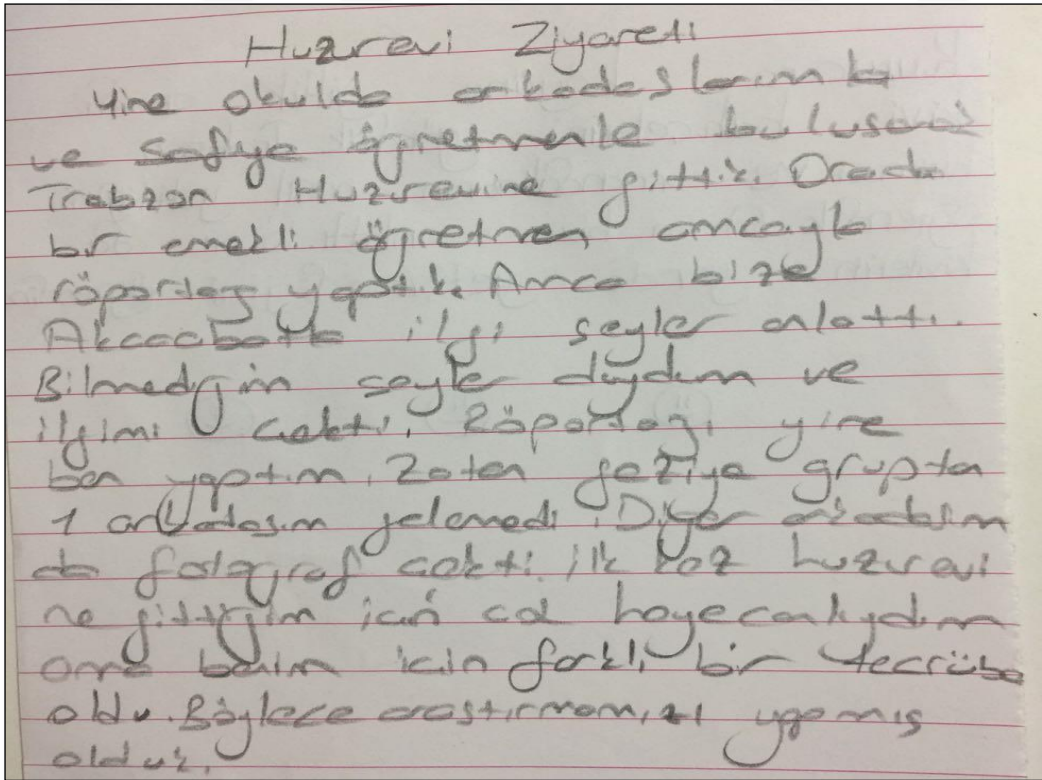 Huzrevi Ziyareti
Yine okulda arkadaslarımla
ve Safiye öğretmenle buluşarak
Trabzon Huzirevine gittik. Orada
bir emekli öğretmen amcayla
röportaj yaptık. Amca bize
Akcaabatla ilgi seyler anlattı.
Bilmediğim seyle duydum ve
ilgimi cekti. Röportajı yine
ben yaptım. Zaten geziye grupton
1 arkadasım gelemedi. Diğer arkadasım
da fotograf cekti. ilk kez huzurevi
ne gittiğim icin cok heyecanlıydım
ama benim icin farklı bir tecrübe
oldu. Böylece arastırmamızı yapmıs
olduk.